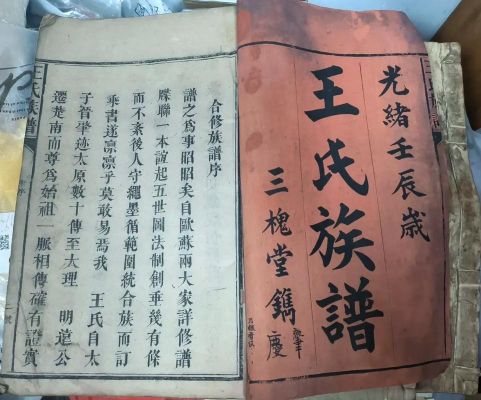 光緒壬辰歲
王氏族譜
三槐堂鐫
慶
合修族譜序
譜之為事昭昭矣自歐蘇兩大家詳修譜
牒聯一本誼起五世圖法制創垂幾有條
而不紊後人守繩墨循範圍統合族而訂
乘書遂凜凜乎莫敢易焉我 王氏自太
子晉肇迹太原數十傳至大理 明道公
遷楚南而尊為始祖一脈相傳確有證實
王氏族譜
序